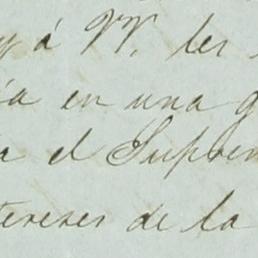 y á VV. les
en una
a el Suprem
tereses de la